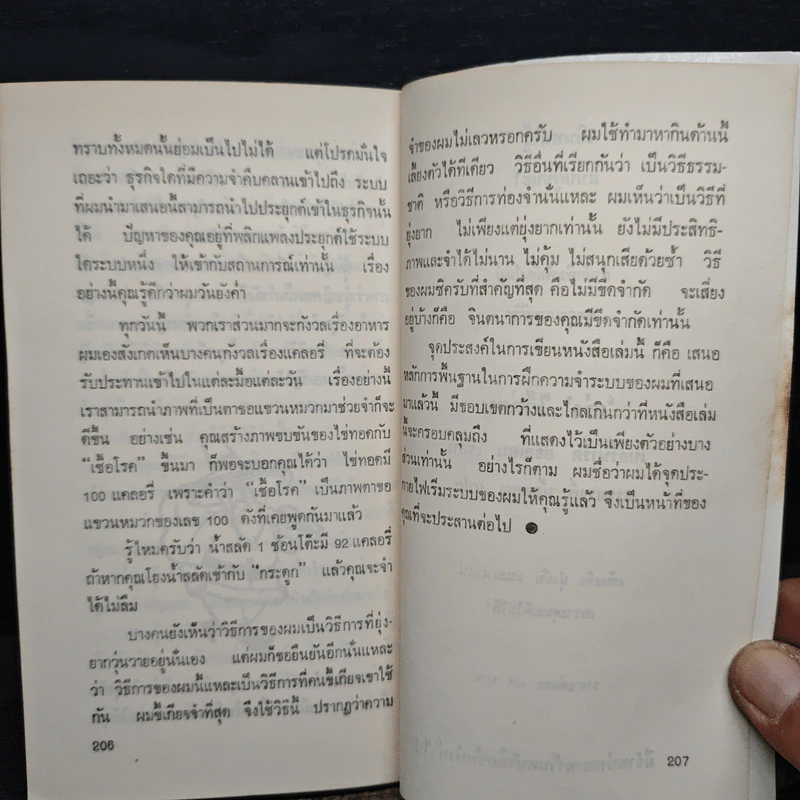 ทราบทั้งหมดนั้นย่อมเป็นไปไม่ได้ แต่โปรดมั่นใจ
เถอะว่า ธุรกิจใดที่มีความจำคืบคลานเข้าไปถึง ระบบ
ที่ผมนำมาเสนอนี้สามารถนำไปประยุกต์เข้าในธุรกิจนั้น
ได้ ปัญหาของคุณอยู่ที่พลิกแพลงประยุกต์ใช้ระบบ
ใดระบบหนึ่ง ให้เข้ากับสถานการณ์เท่านั้น เรื่อง
อย่างนี้คุณรู้ดีกว่าผมวันยังค่ำ
ทุกวันนี้ พวกเราส่วนมากจะกังวลเรื่องอาหาร
ผมเองสังเกตเห็นบางคนกังวลเรื่องแคลอรี่ ที่จะต้อง
รับประทานเข้าไปในแต่ละมื้อแต่ละวัน เรื่องอย่างนี้
เราสามารถนำภาพที่เป็นตาขอแขวนหมวกมาช่วยจำก็จะ
ดีขึ้น อย่างเช่น คุณสร้างภาพขบขันของไข่ทอดกับ
“เชื้อโรค” ขึ้นมา ก็พอจะบอกคุณได้ว่า ไข่ทอดมี
100 แคลอรี่ เพราะคำว่า “เชื้อโรค” เป็นภาพตาขอ
แขวนหมวกของเลข 100 ดังที่เคยพูดกันมาแล้ว
รู้ไหมครับว่า น้ำสลัด 1 ช้อนโต๊ะมี 92 แคลอรี่
ถ้าหากคุณโยงน้ำสลัดเข้ากับ “กระดูก” แล้วคุณจะจำ
ได้ไม่ลืม
บางคนยังเห็นว่าวิธีการของผมเป็นวิธีการที่ยุ่ง-
ยากวุ่นวายอยู่นั่นเอง แต่ผมก็ขอยืนยันอีกนั่นแหละ
ว่า วิธีการของผมนี้แหละเป็นวิธีการที่คนขี้เกียจเขาใช้
กัน ผมขี้เกียจจำที่สุด จึงใช้วิธีนี้ ปรากฏว่าความ
206
จำของผมไม่เลวหรอกครับ ผมใช้ทำมาหากินด้านนี้
เลี้ยงตัวได้ทีเดียว วิธีอื่นที่เรียกกันว่า เป็นวิธีธรรม-
ชาติ หรือวิธีการท่องจำนั่นแหละ ผมเห็นว่าเป็นวิธีที่
ยุ่งยาก ไม่เพียงแต่ยุ่งยากเท่านั้น ยังไม่มีประสิทธิ-
ภาพและจำได้ไม่นาน ไม่คุ้ม ไม่สนุกเสียด้วยซ้ำ วิธี
ของผมซิครับที่สำคัญที่สุด คือไม่มีขีดจำกัด จะเสี่ยง
อยู่บ้างก็คือ จินตนาการของคุณมีขีดจำกัดเท่านั้น
จุดประสงค์ในการเขียนหนังสือเล่มนี้ ก็คือ เสนอ
หลักการพื้นฐานในการฝึกความจำระบบของผมที่เสนอ
มาแล้วนี้ มีขอบเขตกว้างและไกลเกินกว่าที่หนังสือเล่ม
นี้จะครอบคลุมถึง ที่แสดงไว้เป็นเพียงตัวอย่างบาง
ส่วนเท่านั้น อย่างไรก็ตาม ผมชื่อว่าผมได้จุดประ-
กายไฟเริ่มระบบของผมให้คุณรู้แล้ว จึงเป็นหน้าที่ของ
คุณที่จะประสานต่อไป
207